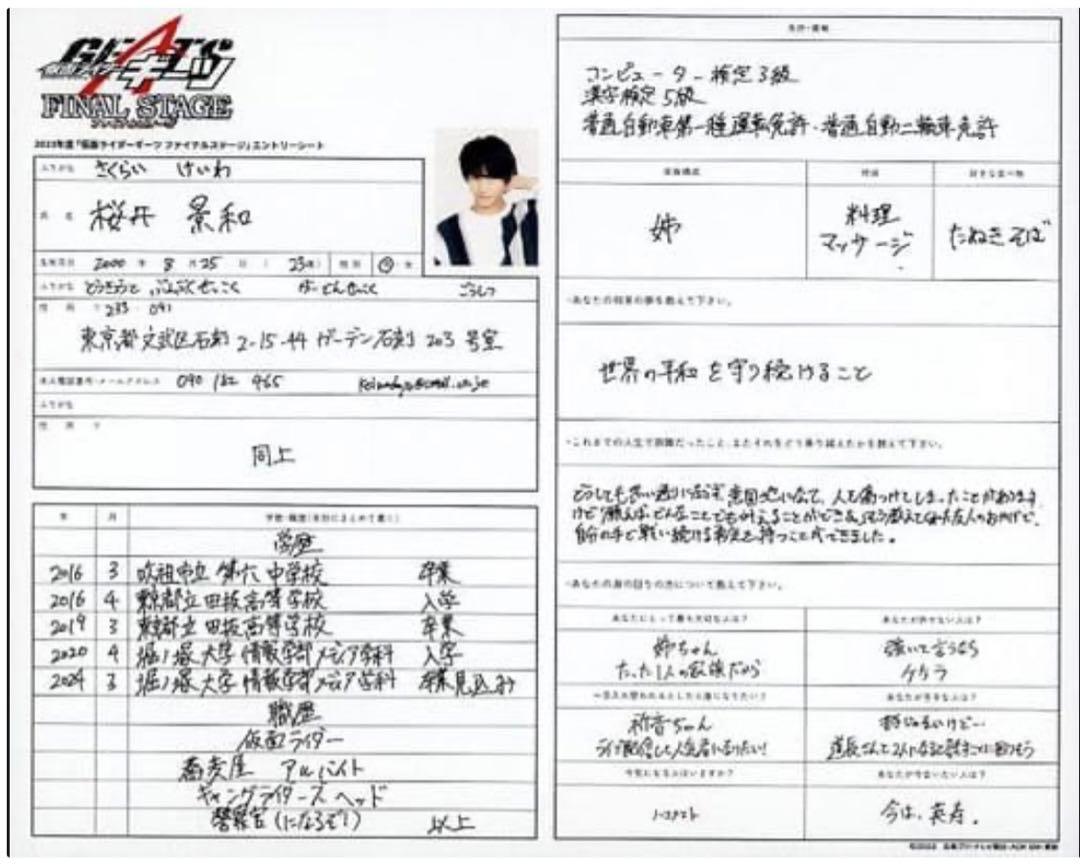 GEATS
仮面ライダーギーツ
FINAL STAGE
ファイナルステージ
2023年度「仮面ライダーギーツ ファイナルステージ」エントリーシート
ふりがな さくらい けいわ
氏名 桜井 景和
生年月日 2000年 8月25日 (23歳) 性別 男・女
ふりがな
住所 〒
東京都文武区石刻 2-15-44 ガーデン石刻 203 号室
本人電話番号・メールアドレス 090
ふりがな
住所 〒
同上
年 月 学歴・職歴(各別にまとめて書く)
学歴
2016 3 市立 第六中学校 卒業
2016 4 東京都立田坂高等学校 入学
2019 3 東京都立田坂高等学校 卒業
2020 4 堀ノ塚大学 情報学部メディア学科 入学
2024 3 堀ノ塚大学 情報学部メディア学科 卒業見込み
職歴
仮面ライダー
蕎麦屋 アルバイト
ギャングライダーズ ヘッド
警察官(になるぞ!) 以上
免許・資格
コンピューター検定3級
漢字検定5級
普通自動車第一種運転免許・普通自動二輪車免許
家族構成 特技 好きな食べ物
姉
料理
マッサージ
たぬきそば
・あなたの将来の夢を教えて下さい。
世界の平和を守り続けること
・これまでの人生で困難だったこと、またそれをどう乗り越えたかを教えて下さい。
どうしても思い通りにならず、意図しないなかで、人を傷つけてしまったことがあります。
けど願えばどんなことでも叶えることができる、そう教えてくれた友人のおかげで、
自分の手で戦い続ける希望を持つことができました。
・あなたの身の回りの方について教えて下さい。
あなたにとって最も大切な人は? あなたが許せない人は?
姉ちゃん
たった1人の家族だから
強いて言うなら
ケケラ
一日入れ替われるとしたら誰になりたい? あなたが苦手な人は?
祢音ちゃん
ライブ配信して人気者になりたい!
苦手じゃないけど…
道長さんと2人になると話すことに困りそう
今気になる人はいますか? あなたが今会いたい人は?
ノーコメント
今は、英寿。